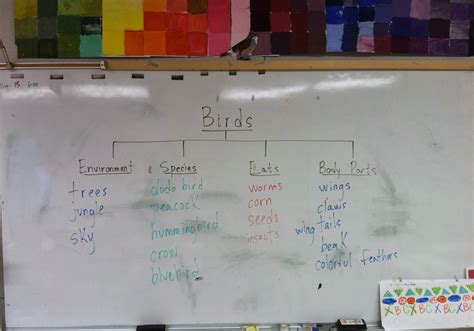 Birds
Environment
trees
jungle
sky
Species
dodo bird
peacock
hummingbird
crow
bluebird
Eats
worms
corn
seeds
insects
Body Parts
wings
claws
wing tails
beak
colorful feathers